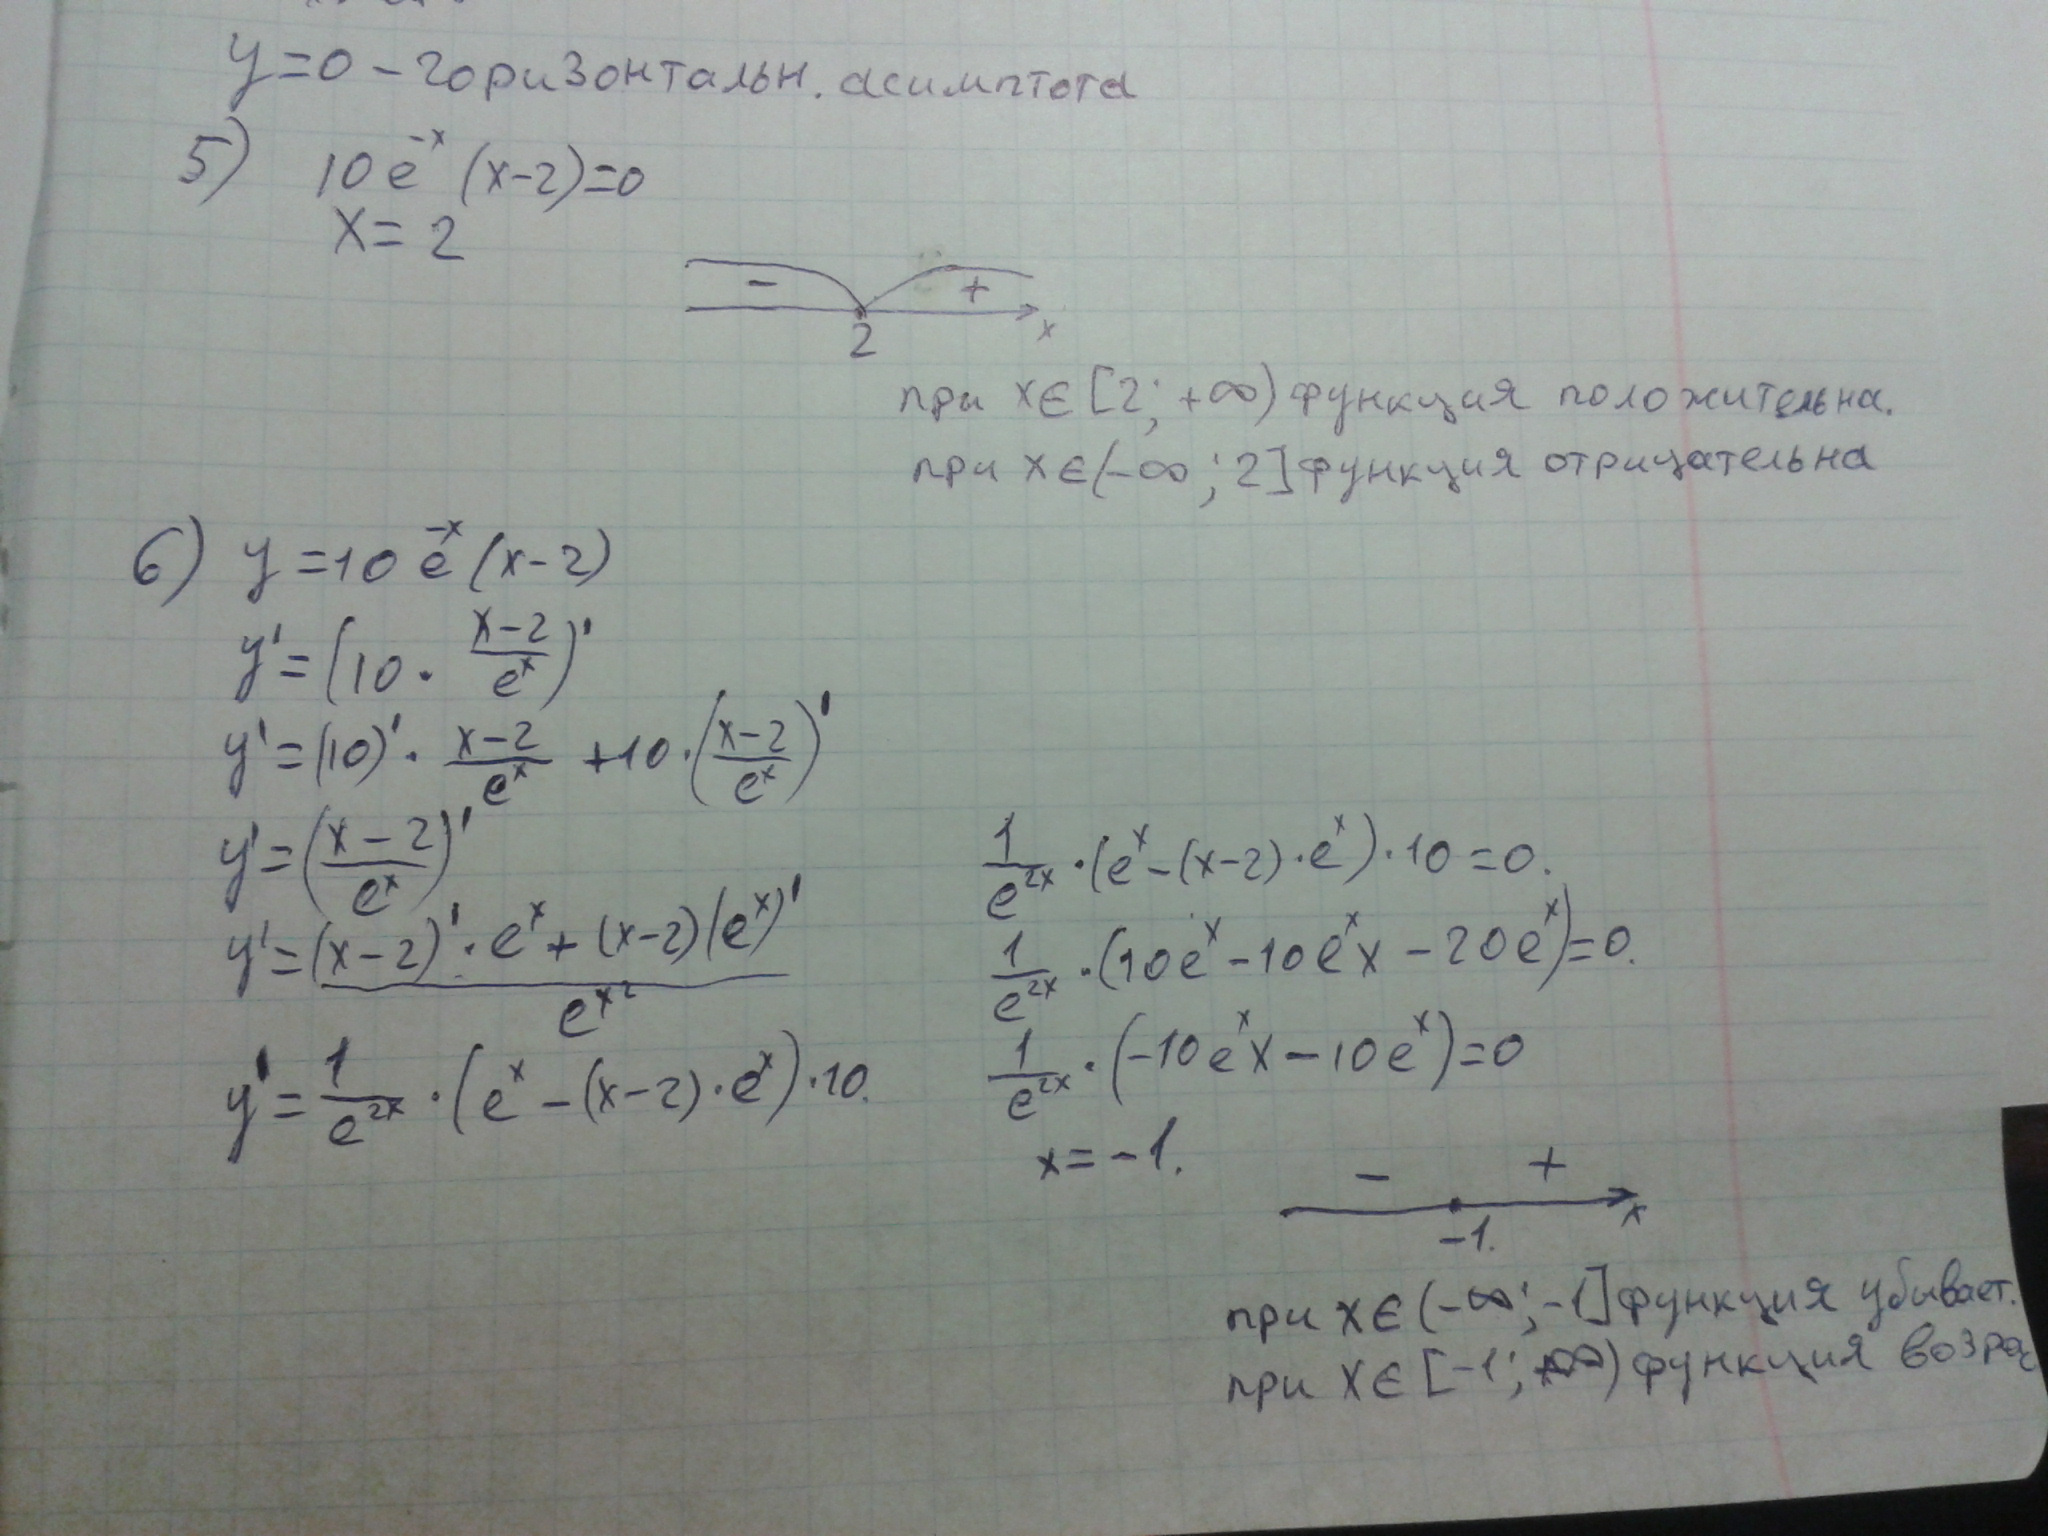 y=0 – горизонтальн. асимптота
5) 10e^{-x}(x-2)=0
x=2
- +
2 x
при x∈[2; +∞) функция положительна.
при x∈(-∞; 2] функция отрицательна
6) y=10e^{-x}(x-2)
y'=(10·\frac{x-2}{e^x})'
y'=(10)'·\frac{x-2}{e^x}+10·(\frac{x-2}{e^x})'
y'=(\frac{x-2}{e^x})'
y'=\frac{(x-2)'·e^x+(x-2)(e^x)'}{e^{x^2}}
y'=\frac{1}{e^{2x}}·(e^x-(x-2)·e^x)·10.
\frac{1}{e^{2x}}·(e^x-(x-2)·e^x)·10=0.
\frac{1}{e^{2x}}·(10e^x-10e^x x-20e^x)=0.
\frac{1}{e^{2x}}·(-10e^x x-10e^x)=0
x=-1.
- +
-1. x
при x∈(-∞; -1] функция убывает.
при x∈[-1; +∞) функция возрас